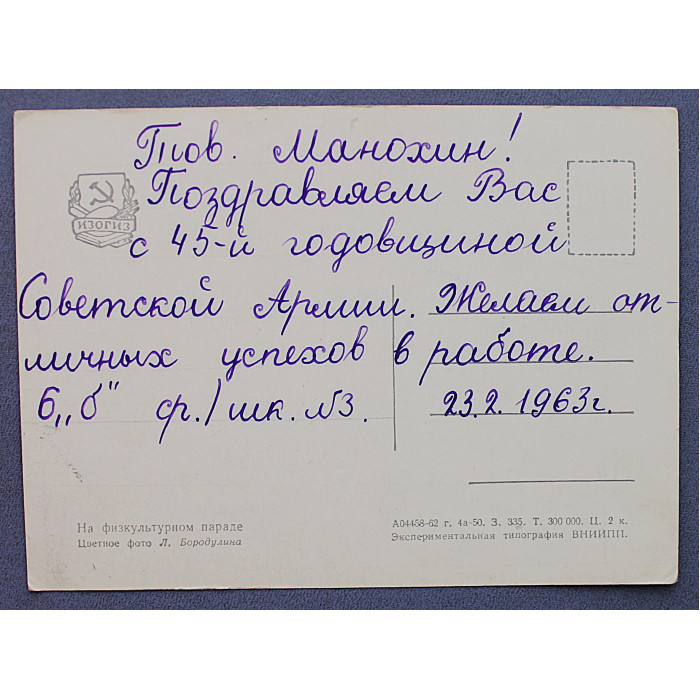 Тов. Манохин!
Поздравляем Вас
с 45-й годовщиной
Советской Армии. Желаем от-
личных успехов в работе.
6 „б" ср./шк. №3.
23.2. 1963г.
ИЗОГИЗ
На физкультурном параде
Цветное фото Л. Бородулина
А04458-62 г. 4а-50. З. 335. Т. 300 000. Ц. 2 к.
Экспериментальная типография ВНИИПП.